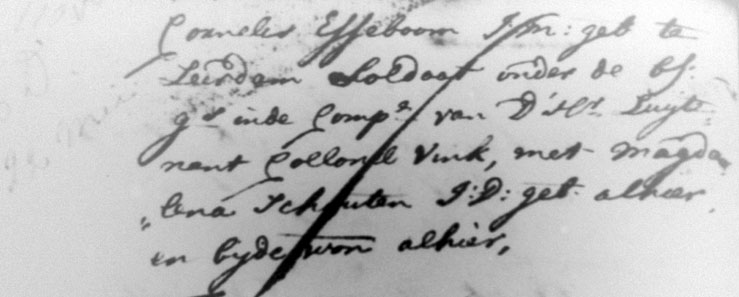 Cornelis Esseboom J:m: geb te
Leerdam Soldaat onder de bs:
gs inde Compe van D'Hr Luyte
nant Collonel Vink, met Magda
„lena Schouten J:D: geb alhier
en byde won alhier,